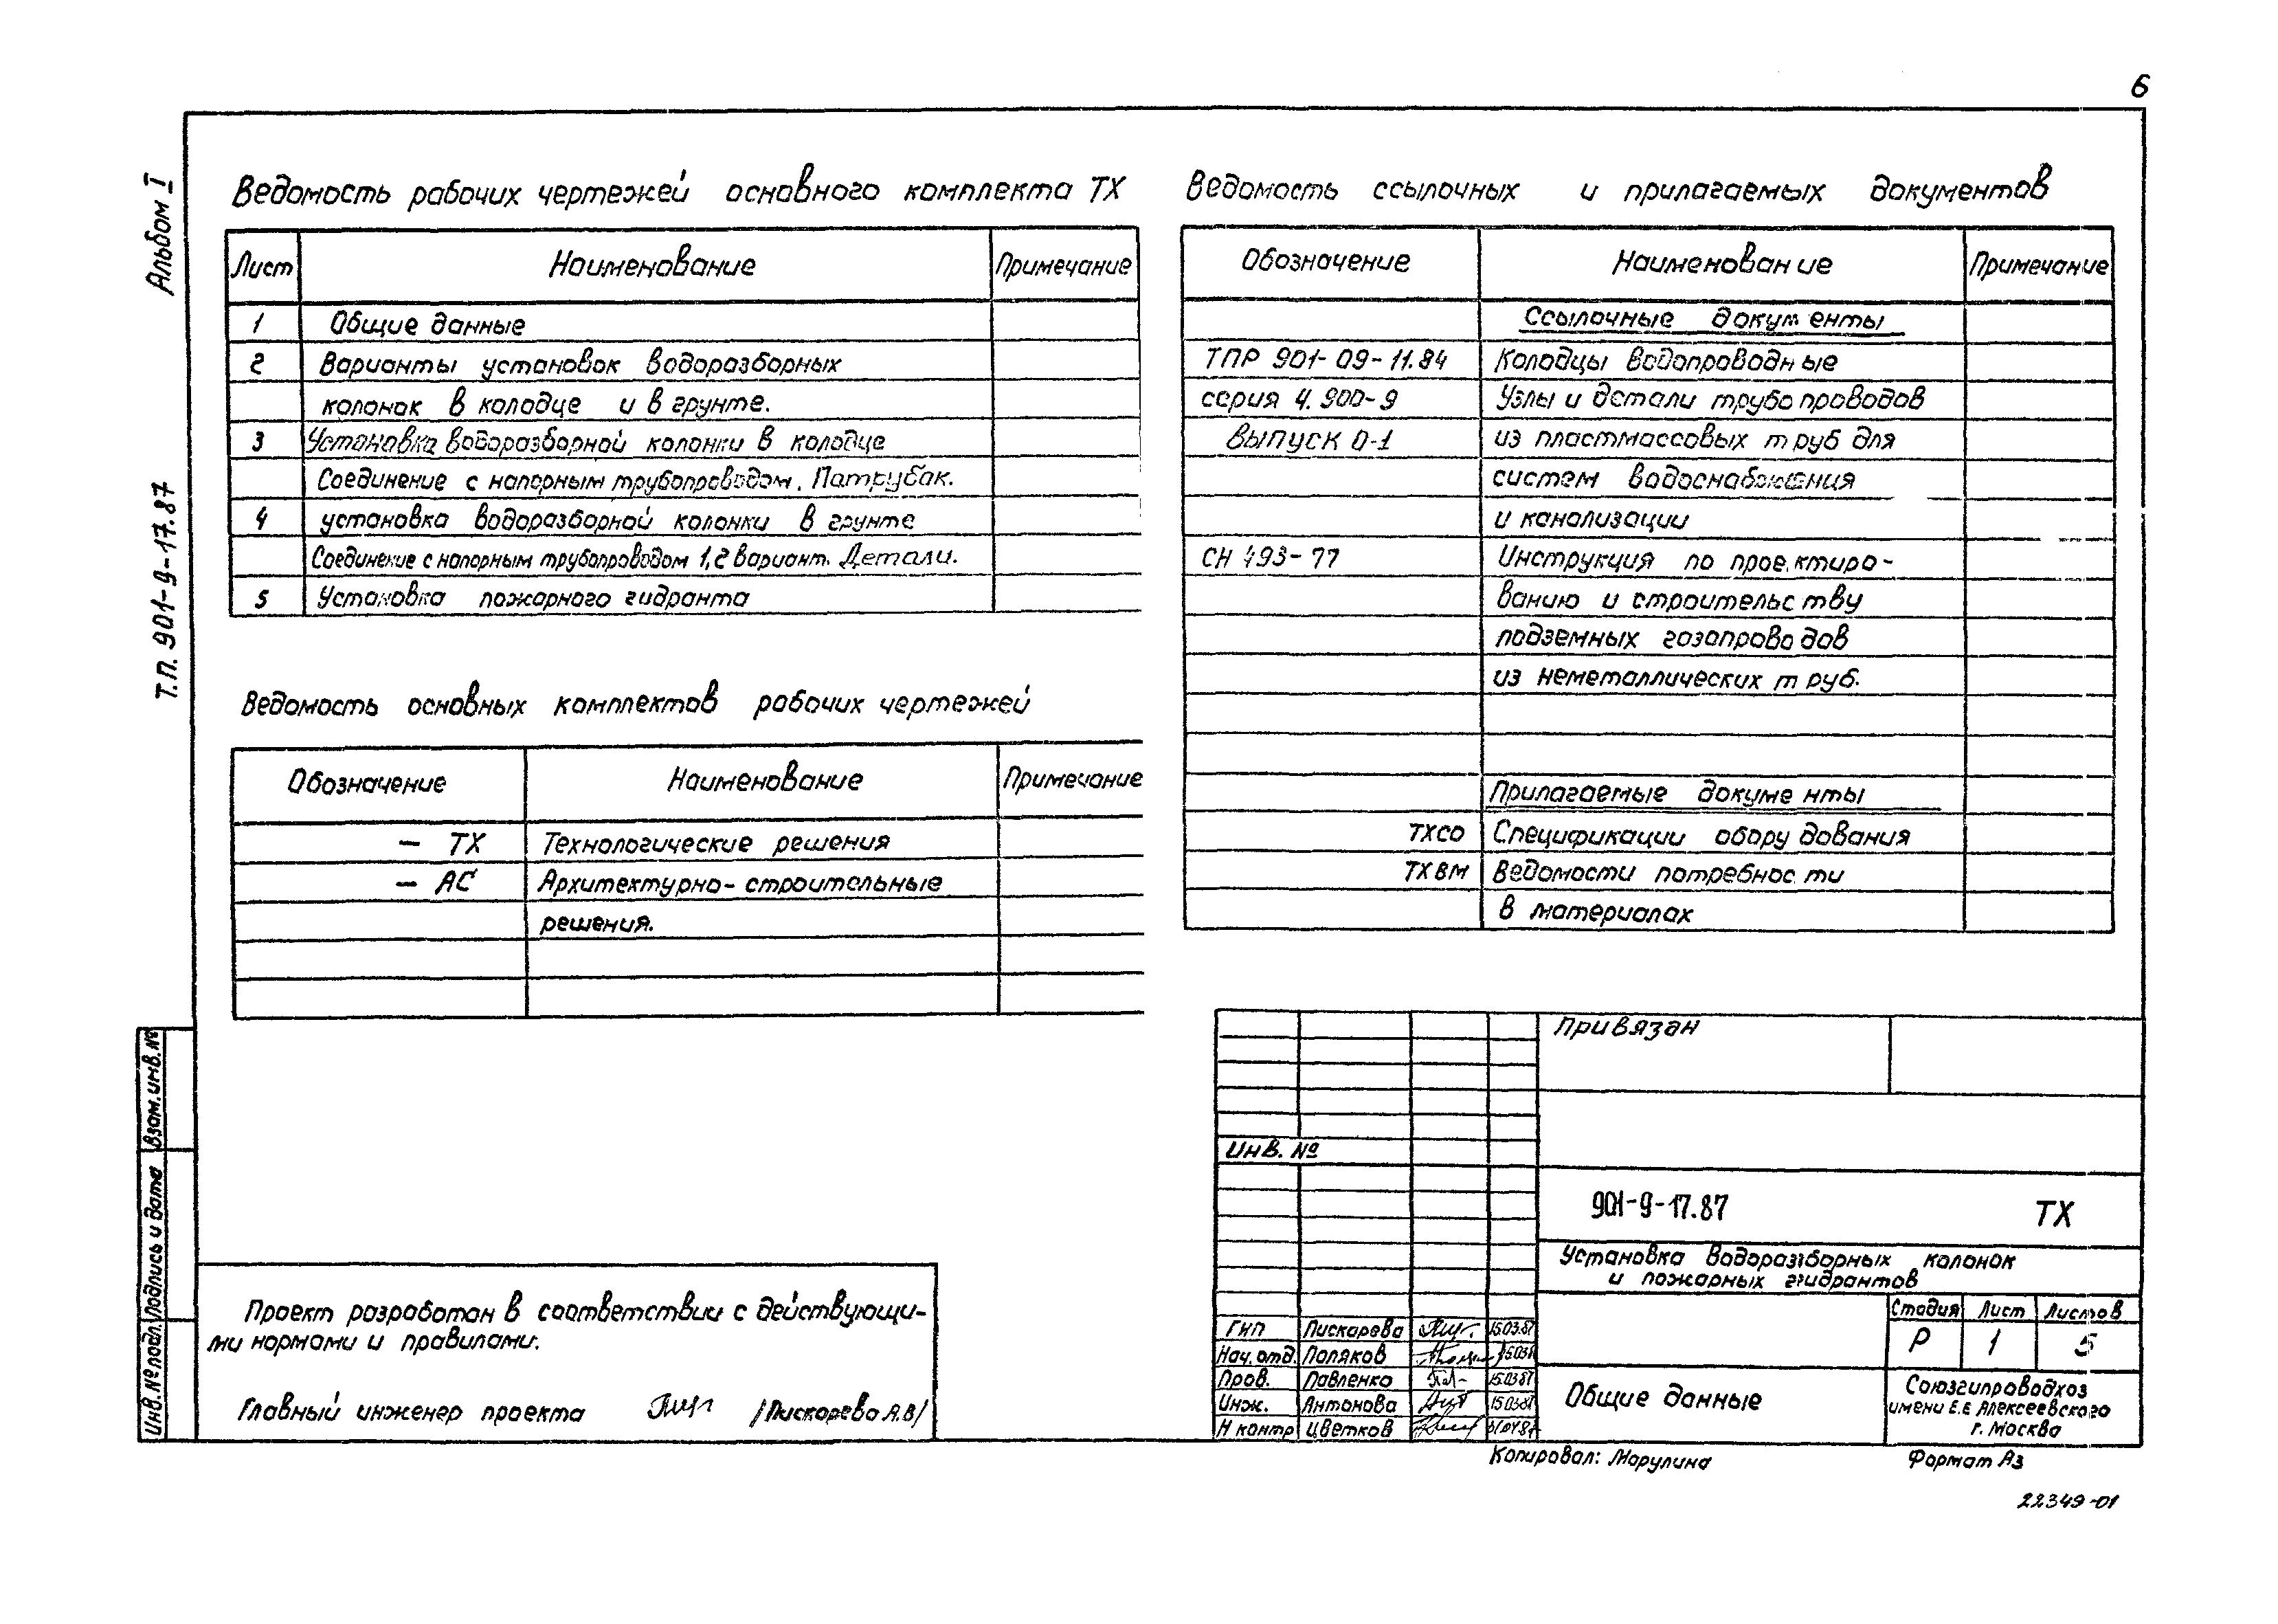 6
Альбом I
Т.П. 901-9-17.87
Ведомость рабочих чертежей основного комплекта ТХ
Лист Наименование Примечание
1 Общие данные
2 Варианты установок водоразборных
колонок в колодце и в грунте.
3 Установка водоразборной колонки в колодце
Соединение с напорным трубопроводом. Патрубок.
4 установка водоразборной колонки в грунте
Соединение с напорным трубопроводом 1,2 вариант. Детали.
5 Установка пожарного гидранта
Ведомость основных комплектов рабочих чертежей
Обозначение Наименование Примечание
— ТХ Технологические решения
— АС Архитектурно-строительные
решения.
Ведомость ссылочных и прилагаемых документов
Обозначение Наименование Примечание
Ссылочные документы
ТПР 901-09-11.84 Колодцы водопроводные
серия 4.900-9 Узлы и детали трубопроводов
выпуск 0-1 из пластмассовых труб для
систем водоснабжения
и канализации
СН 493-77 Инструкция по проектиро-
ванию и строительству
подземных газопроводов
из неметаллических труб.
Прилагаемые документы
ТХСО Спецификации оборудования
ТХВМ Ведомости потребности
в материалах
Взам.инв.№
Подпись и дата
Инв.№подл.
Проект разработан в соответствии с действующи-
ми нормами и правилами.
Главный инженер проекта /Пискарева А.В/
Привязан
Инв. №
901-9-17.87 ТХ
Установка водоразборных колонок
и пожарных гидрантов
Стадия Лист Листов
Р 1 5
ГИП Пискарева 15.03.87
Нач.отд. Поляков
Пров. Павленко 15.03.87
Инж. Антонова 15.03.87
Н контр Цветков
Общие данные
Союзгипроводхоз
имени Е.Е Алексеевского
г. Москва
Копировал: Марулина Формат А3
22349-01